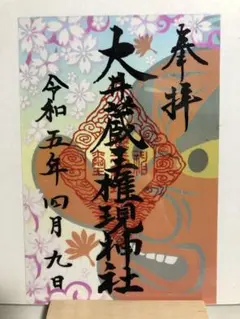 奉拝
大井蔵王権現神社
令和五年四月九日